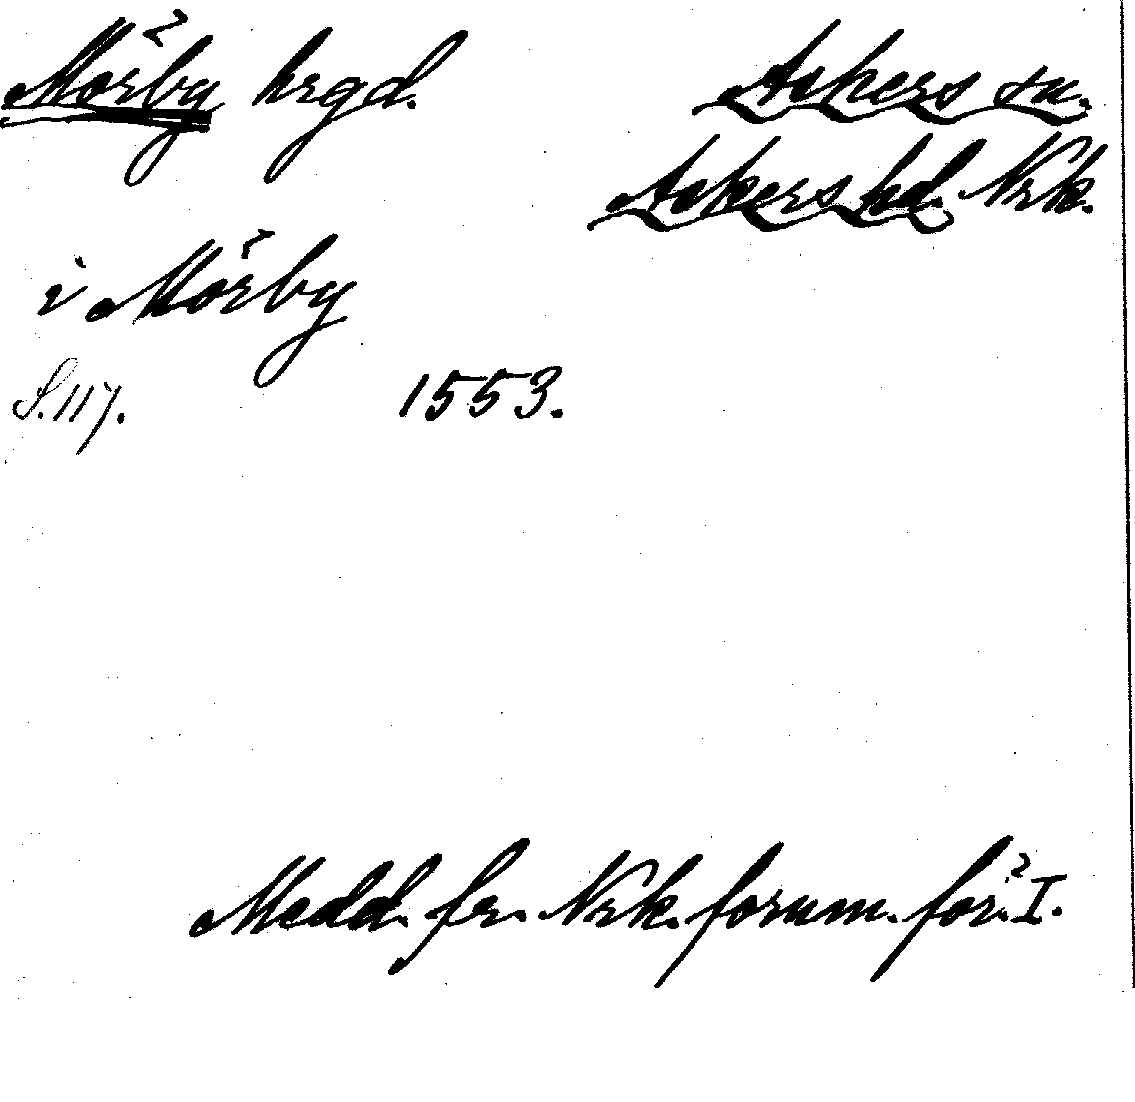 Mörby hrgd.
Askers sn.
Askers hd. Nrk.
i Mörby
S. 117. 1553.
Medd. fr. Nrk. fornm. för. I.